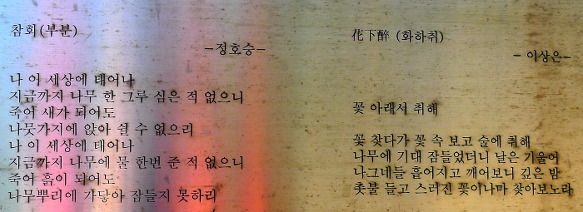 참회(부분)
-정호승-
나 이 세상에 태어나
지금까지 나무 한 그루 심은 적 없으니
죽어 새가 되어도
나뭇가지에 앉아 쉴 수 없으리
나 이 세상에 태어나
지금까지 나무에 물 한번 준 적 없으니
죽어 흙이 되어도
나무뿌리에 가닿아 잠들지 못하리
花下醉 (화하취)
- 이상은-
꽃 아래서 취해
꽃 찾다가 꽃 속 보고 술에 취해
나무에 기대 잠들었더니 날은 기울어
나그네들 흩어지고 깨어보니 깊은 밤
촛불 들고 스러진 꽃이나마 찾아보노라